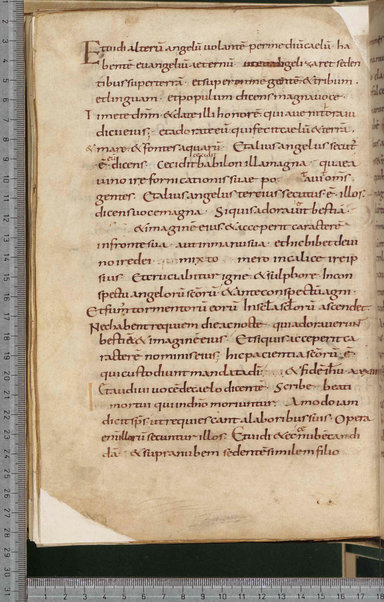 Et uidi alterum angelũ uolantẽ per mediũ caelũ · ha
bentẽ euangeliũ aeternũ · ut euangelizaret seden
tibus super terrã · et super omne gentẽ & tribum ·
et linguam · et populum dicens magna uoce ·
Timete dnm̃ & date illi honorẽ quia uenit hora iu
dicii eius · et adorate eũ qui fecit caelũ & terrã ·
& mare · & fontes aquarũ · Et alius angelus secut'
ẽ dicens · Cecidit babilon illa magna · quae a
uino irae fornicationis suae po      auit oms̃
gentes · Et alius angelus tertius secutus ẽ illos ·
dicens uoce magna · Si quis adorauit bestiã ·
& imaginẽ eius & acceperit caracterẽ
in fronte sua · aut in manu sua · et hic bibet de ui
no irae dei      mixto      mero in calice irae ip
sius · Et cruciabitur igne & sulphore · In con
spectu angelorũ sc̃orũ & ante conspectũ agni ·
Et fum' tormentorũ eorũ · In sc̃la sc̃lorũ ascendet ·
Nec habent requiem die ac nocte · qui adorauerunt
bestiã & imaginẽ eius · Et si quis acceperit ca
racterẽ nominis eius · hic pacientia sc̃orũ ẽ
qui custodiunt mandata di      & fidẽ
Et audiui uocẽ de caelo dicentẽ · Scribe · beati
mortui qui in dño moriuntur · Amodo iam
dicit sp̃s ut requiescant a laboribus suis · Opera
enim illorũ secuntur illos · Et uidi & ecce nubẽ candi
dã · & supra nubem sedentẽ similem filio